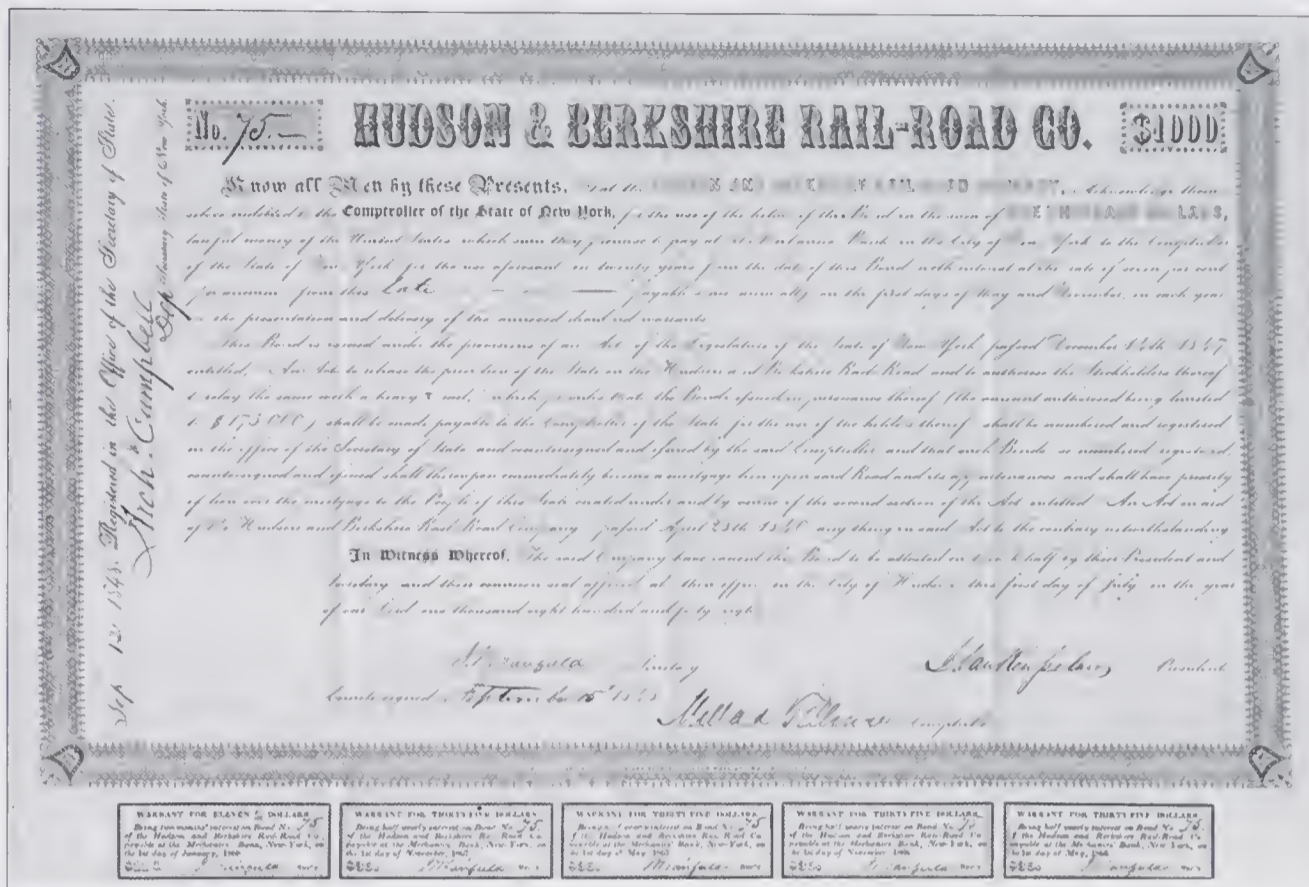 No. 75.—
HUDSON & BERKSHIRE RAIL-ROAD CO.
$1000
Know all Men by these Presents, that the HUDSON AND BERKSHIRE RAIL ROAD COMPANY, Acknowledge them
selves indebted to the Comptroller of the State of New York, for the use of the holder of this Bond in the sum of ONE THOUSAND DOLLARS,
lawful money of the United States which sum they promise to pay at the Bank in the City of New York to the Comptroller
of the State of New York for the use aforesaid in twenty years from the date of this Bond with interest at the rate of seven per cent
per annum from this date payable semi annually on the first days of May and November, in each year
on the presentation and delivery of the annexed warrants
This Bond is issued under the provisions of an Act of the Legislature of the State of New York passed December 14th 1847
entitled, An Act to release the of the State on the Hudson and Berkshire Rail Road and to authorize the Stockholders thereof
to relay the same with a heavy rail, which provides that the Bonds issued in pursuance thereof (the amount authorized being limited
to $175 000) shall be made payable to the Comptroller of the State for the use of the holders thereof shall be numbered and registered
in the office of the Secretary of State and countersigned and issued by the said Comptroller and that such Bonds so numbered registered,
countersigned and issued shall thereupon immediately become a mortgage lien upon said Road and its appurtenances and shall have priority
of lien over the mortgage to the People of this State created under and by virtue of the second section of the Act entitled An Act in aid
of the Hudson and Berkshire Rail Road Company passed April 23th 1840 any thing in said Act to the contrary notwithstanding
In Witness Whereof, The said Company have caused this Bond to be attested on their behalf by their President and
Secretary and their common seal affixed at their office in the City of Hudson this first day of July in the year
of our Lord one thousand eight hundred and forty eight
Secretary
President
Countersigned September 15 1848
Millard Fillmore Comptroller
Sep 12 1848. Registered in the Office of the Secretary of State.
Arch. Campbell
Dep Secretary State of New York.
WARRANT FOR ELEVEN DOLLARS
Being two months' interest on Bond No. 75
of the Hudson and Berkshire Rail-Road Co.
payable at the Mechanics Bank, New-York, on
the 1st day of January,
WARRANT FOR THIRTY FIVE DOLLARS
Being half yearly interest on Bond No. 75.
of the Hudson and Berkshire Rail Road Co
payable at the Mechanics Bank, New-York, on
the 1st day of November,
WARRANT FOR THIRTY FIVE DOLLARS
Being yearly interest on Bond No. 75
of the Hudson and Berkshire Rail Road Co
payable at the Mechanics' Bank, New York, on
the 1st day of May
WARRANT FOR THIRTY FIVE DOLLARS
Being half yearly interest on Bond No. 75
of the Hudson and Berkshire Rail-Road Co
payable at the Mechanics' Bank, New-York, on
the 1st day of November
WARRANT FOR THIRTY FIVE DOLLARS
Being half yearly interest on Bond No. 75.
of the Hudson and Berkshire Rail-Road Co
payable at the Mechanics' Bank, New-York, on
the 1st day of May,